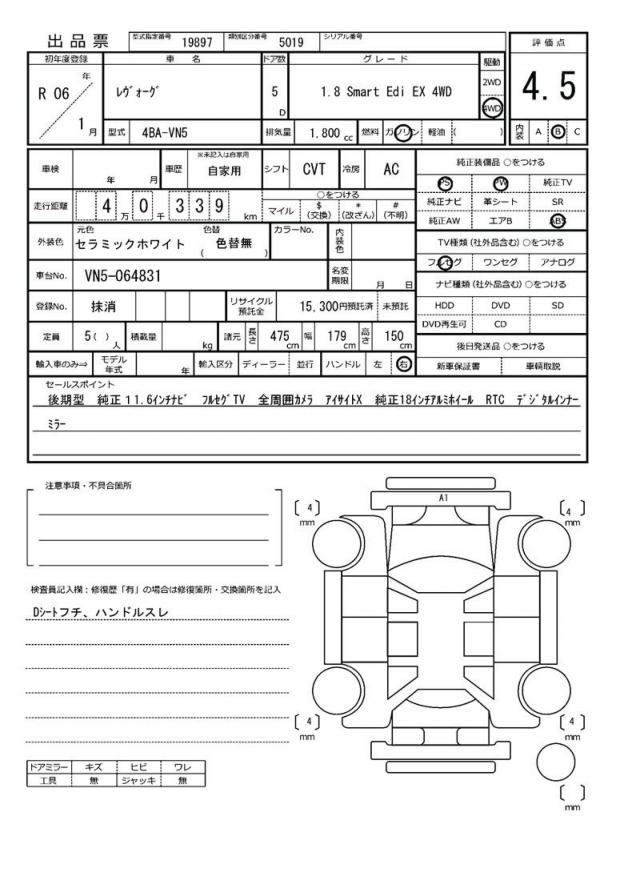 出品票 型式指定番号 19897 類別区分番号 5019 シリアル番号
初年度登録 車名 ドア数 グレード 駆動 評価点
R 06 年 1 月 ﾚｳﾞｫｰｸﾞ 5 D 1.8 Smart Edi EX 4WD 2WD 4WD 4.5
型式 4BA-VN5 排気量 1,800 cc 燃料 ガソリン 軽油 ( ) 内装 A B C
車検 年 月 車歴 ※未記入は自家用 自家用 シフト CVT 冷房 AC 純正装備品 ○をつける
PS PW 純正TV
走行距離 4 万 0 千 339 km ○をつける
マイル $ (交換) * (改ざん) # (不明)
純正ナビ 革シート SR
純正AW エアB ABS
外装色 元色 セラミックホワイト 色替 ( 色替無 ) カラーNo. 内装色
TV種類 (社外品含む) ○をつける
フルセグ ワンセグ アナログ
車台No. VN5-064831 名変期限 月 日
ナビ種類 (社外品含む) ○をつける
登録No. 抹消 リサイクル預託金 15,300円預託済 未預託
HDD DVD SD
DVD再生可 CD
定員 5( ) 人 積載量 kg 諸元 長さ 475 cm 幅 179 cm 高さ 150 cm
後日発送品 ○をつける
輸入車のみ⇒ モデル年式 年 輸入区分 ディーラー 並行 ハンドル 左 右
新車保証書 車輌取説
セールスポイント
後期型 純正11.6インチナビ フルセグTV 全周囲カメラ アイサイトX 純正18インチアルミホイール RTC デジタルインナー
ミラー
注意事項・不具合箇所
A1
[ 4 ] mm
[ 4 ] mm
検査員記入欄：修復歴「有」の場合は修復箇所・交換箇所を記入
Dシートフチ、ハンドルスレ
[ 4 ] mm
[ 4 ] mm
ドアミラー キズ ヒビ ワレ
工具 無 ジャッキ 無
[ ] mm